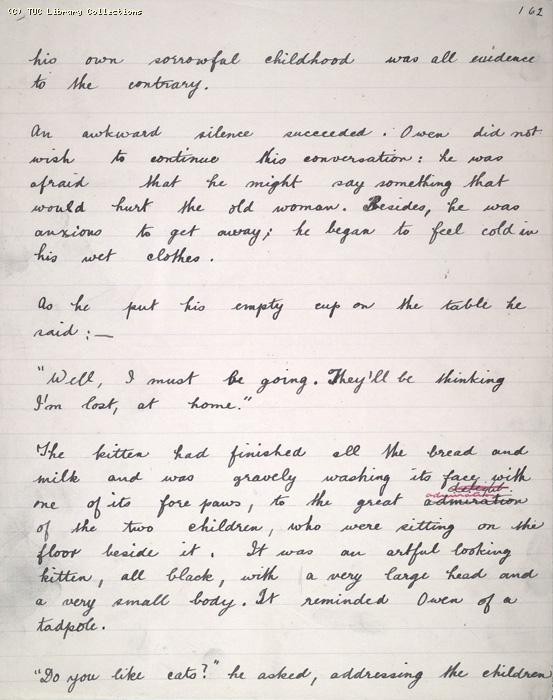 (C) TUC Library Collections
162
his own sorrowful childhood was all evidence
to the contrary.
An awkward silence succeeded. Owen did not
wish to continue this conversation: he was
afraid that he might say something that
would hurt the old woman. Besides, he was
anxious to get away; he began to feel cold in
his wet clothes.
As he put his empty cup on the table he
said:—
"Well, I must be going. They'll be thinking
I'm lost, at home."
The kitten had finished all the bread and
milk and was gravely washing its face with
one of its fore paws, to the great admiration
of the two children, who were sitting on the
floor beside it. It was an artful looking
kitten, all black, with a very large head and
a very small body. It reminded Owen of a
tadpole.
"Do you like cats?" he asked, addressing the children